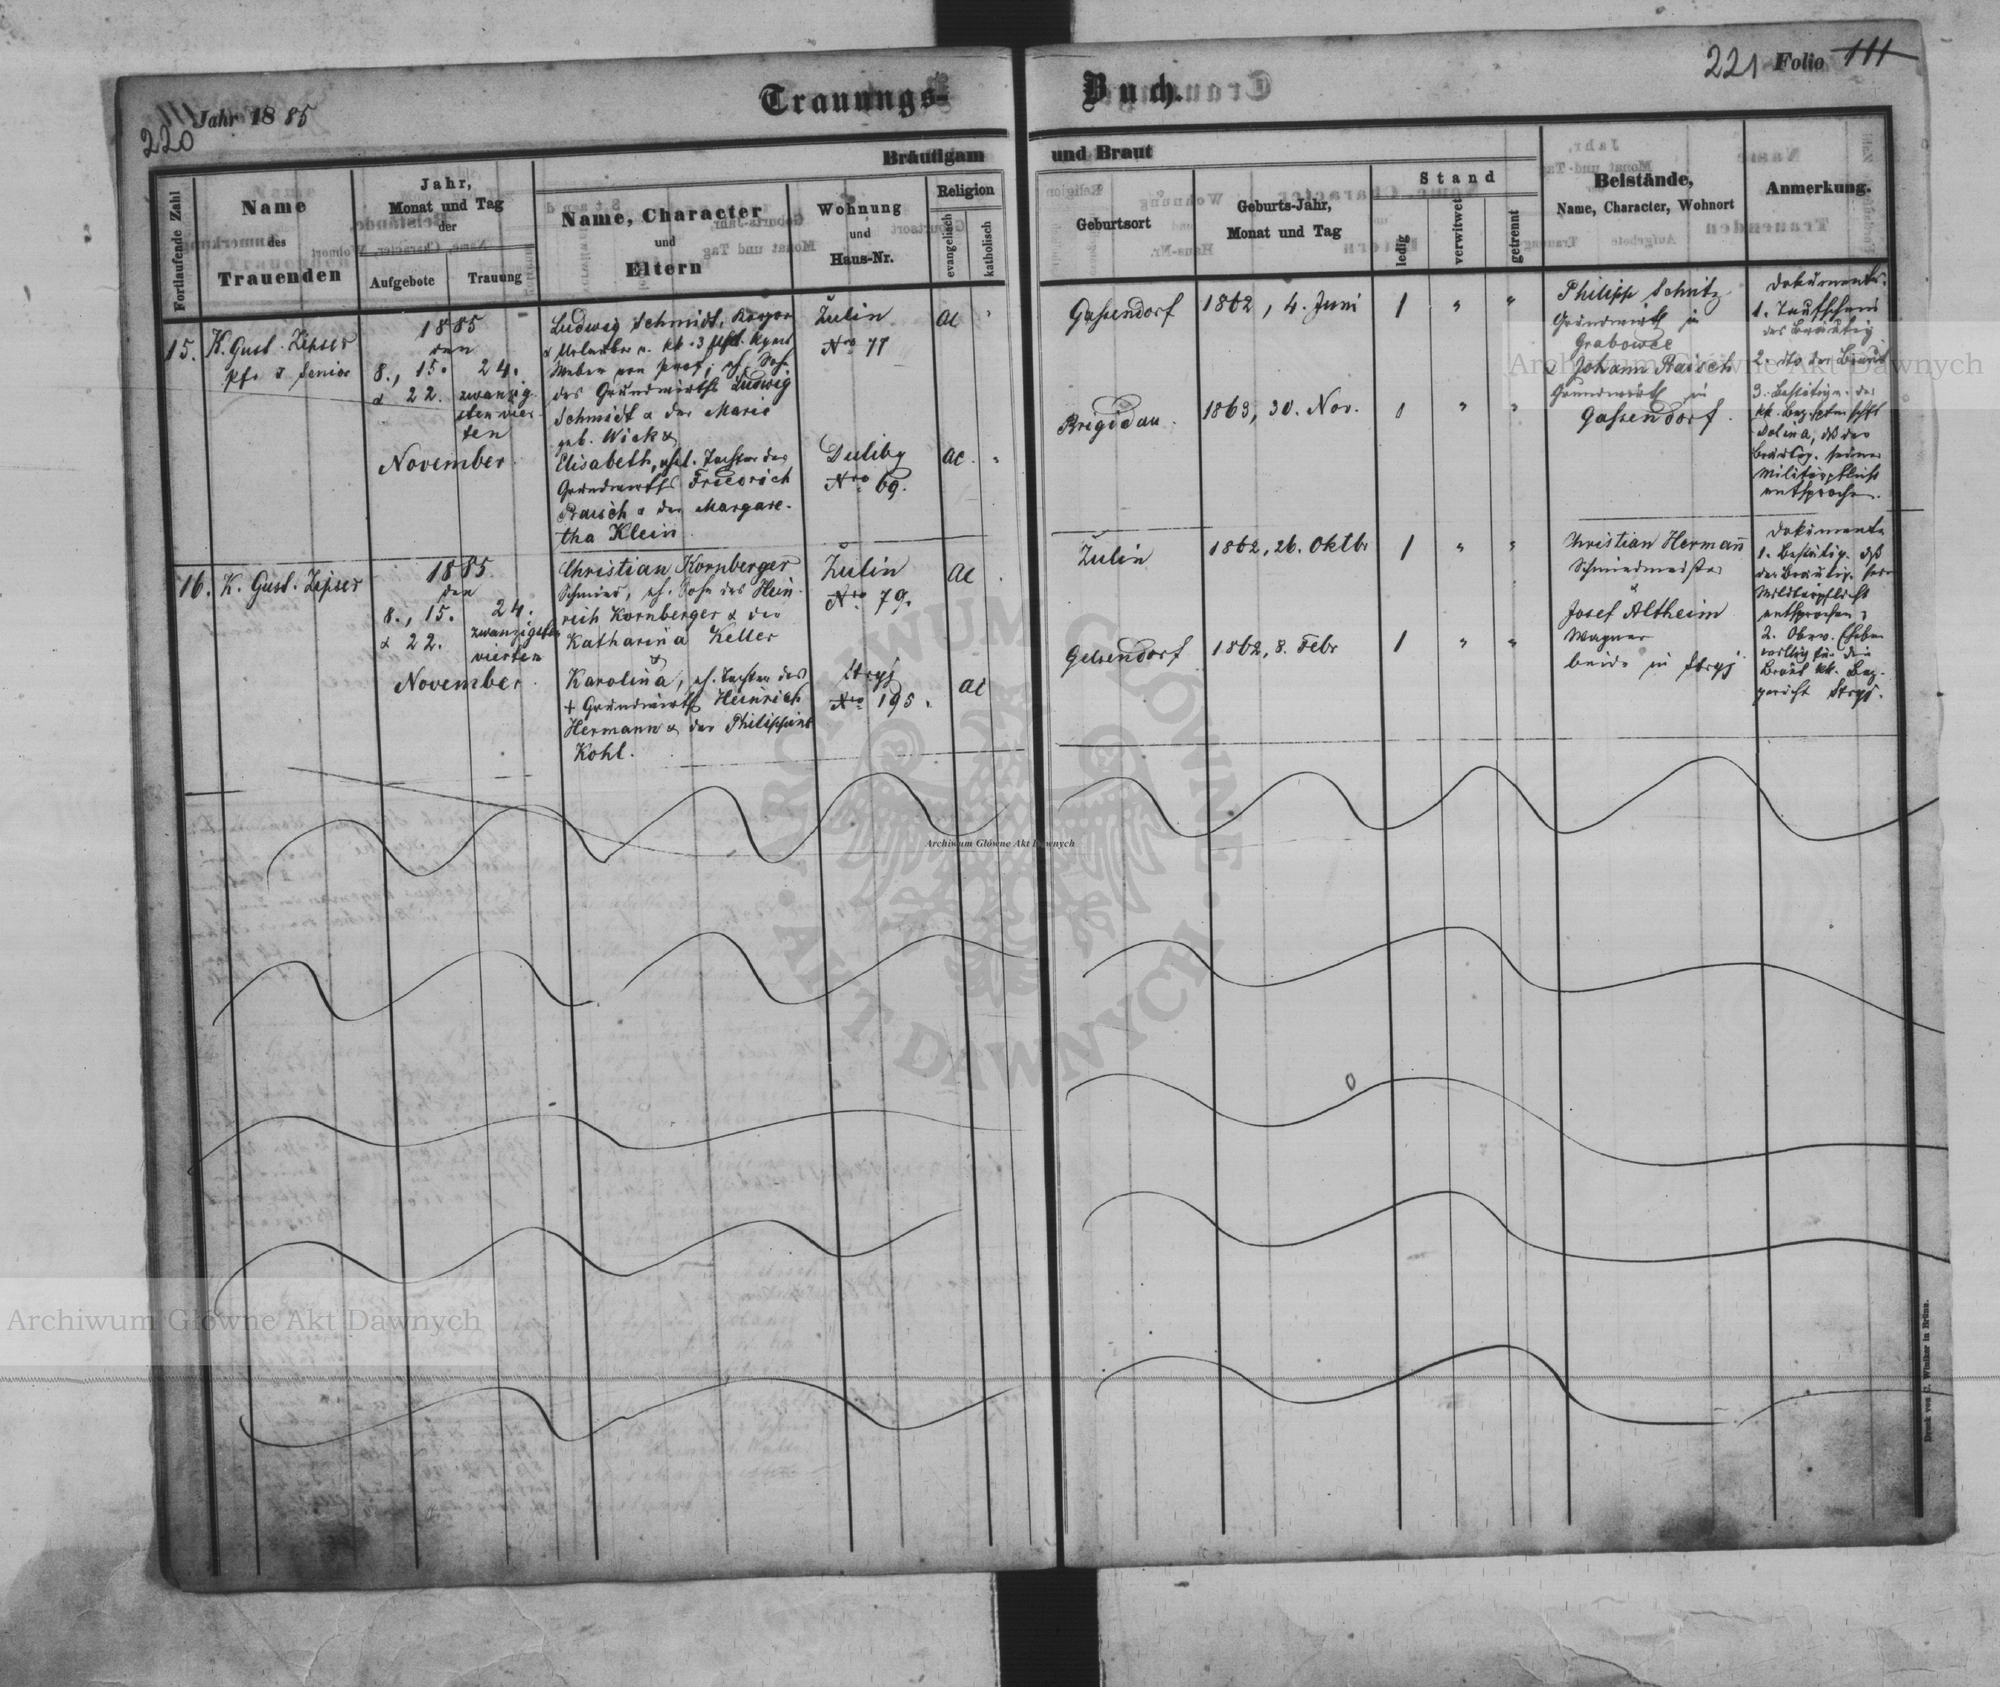 220
Jahr 1885
Trauungs-Buch.
221 Folio 111
Bräutigam und Braut
Fortlaufende Zahl
Name
des
Trauenden
Jahr,
Monat und Tag
der
Aufgebote
Trauung
Name, Character
und
Eltern
Wohnung
und
Haus-Nr.
Religion
evangelisch
katholisch
Geburtsort
Geburts-Jahr,
Monat und Tag
Stand
ledig
verwitwet
getrennt
Beistände,
Name, Character, Wohnort
Anmerkung.
15.
K. Gust. Zipser
Pfr. & Senior
1885
den
8., 15.
& 22.
24.
zwanzig
sten vier
ten
November
Ludwig Schmidt,
& Urlauber
Weber von Prof.
des Grundwirths Ludwig
Schmidt & der Marie
geb. Wick &
Elisabeth, ehl. Tochter des
Grundwirths Friedrich
Raisch & der Margare-
tha Klein
Žulin
Nro 77
Duliby
Nro 69.
ac
ac.
Gassendorf
Brigidau.
1862, 4. Juni
1863, 30. Nov.
1 " "
Philipp Schütz
Grundwirth in
Grabowce
Johann Raisch
Grundwirth in
Gassendorf.
Dokumente:
1. Taufschein
des Bräutig
2. dto der Braut
3. Bestätig. der
kk. Bez.
Dolina, dß der
Bräutig. seiner
Militärpflicht
entsprochen.
16.
K. Gust. Zipser
1885
den
8., 15.
& 22.
24.
zwanzigsten
vierten
November.
Christian Kornberger
Schmied, eh. Sohn des Hein
rich Kornberger & der
Katharina Keller
&
Karolina, eh. Tochter des
+ Grundwirth Heinrich
Hermann & der Philippine
Kohl.
Žulin
Nro 79.
Stryj
Nro 195.
ac
ac
Žulin
Gelsendorf
1862, 26. Oktbr
1862, 8. Febr
1 " "
1 " "
Christian Hermañ
Schmiedmeister
Josef Altheim
Wagner
beide in Stryj
Dokumente
1. Bestätig. dß
der Bräutig.
Militärpflicht
entsprochen;
2.
Braut kk. Bez.
gericht Stryj.
Druck von C. Winiker in Brünn.
Archiwum Główne Akt Dawnych
Archiwum Główne Akt Dawnych
Archiwum Główne Akt Dawnych
ARCHIWUM GŁÓWNE · AKT DAWNYCH ·